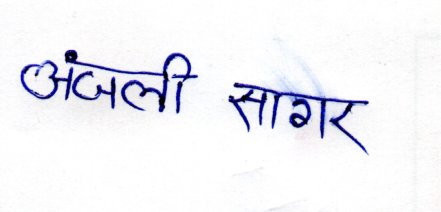 अंजली सागर